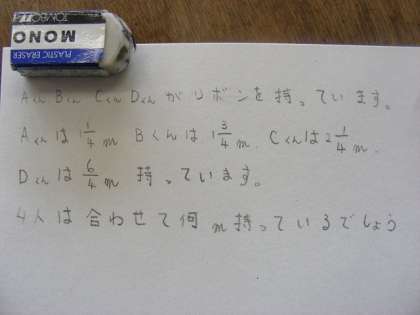 TOMBO
MONO
PLASTIC ERASER
Aくん Bくん Cくん Dくんがリボンを持っています。
Aくんは 1 1/4 m Bくんは 1 3/4 m. Cくんは 2 1/4 m.
Dくんは 6/4 m 持っています。
4人は合わせて何m持っているでしょう